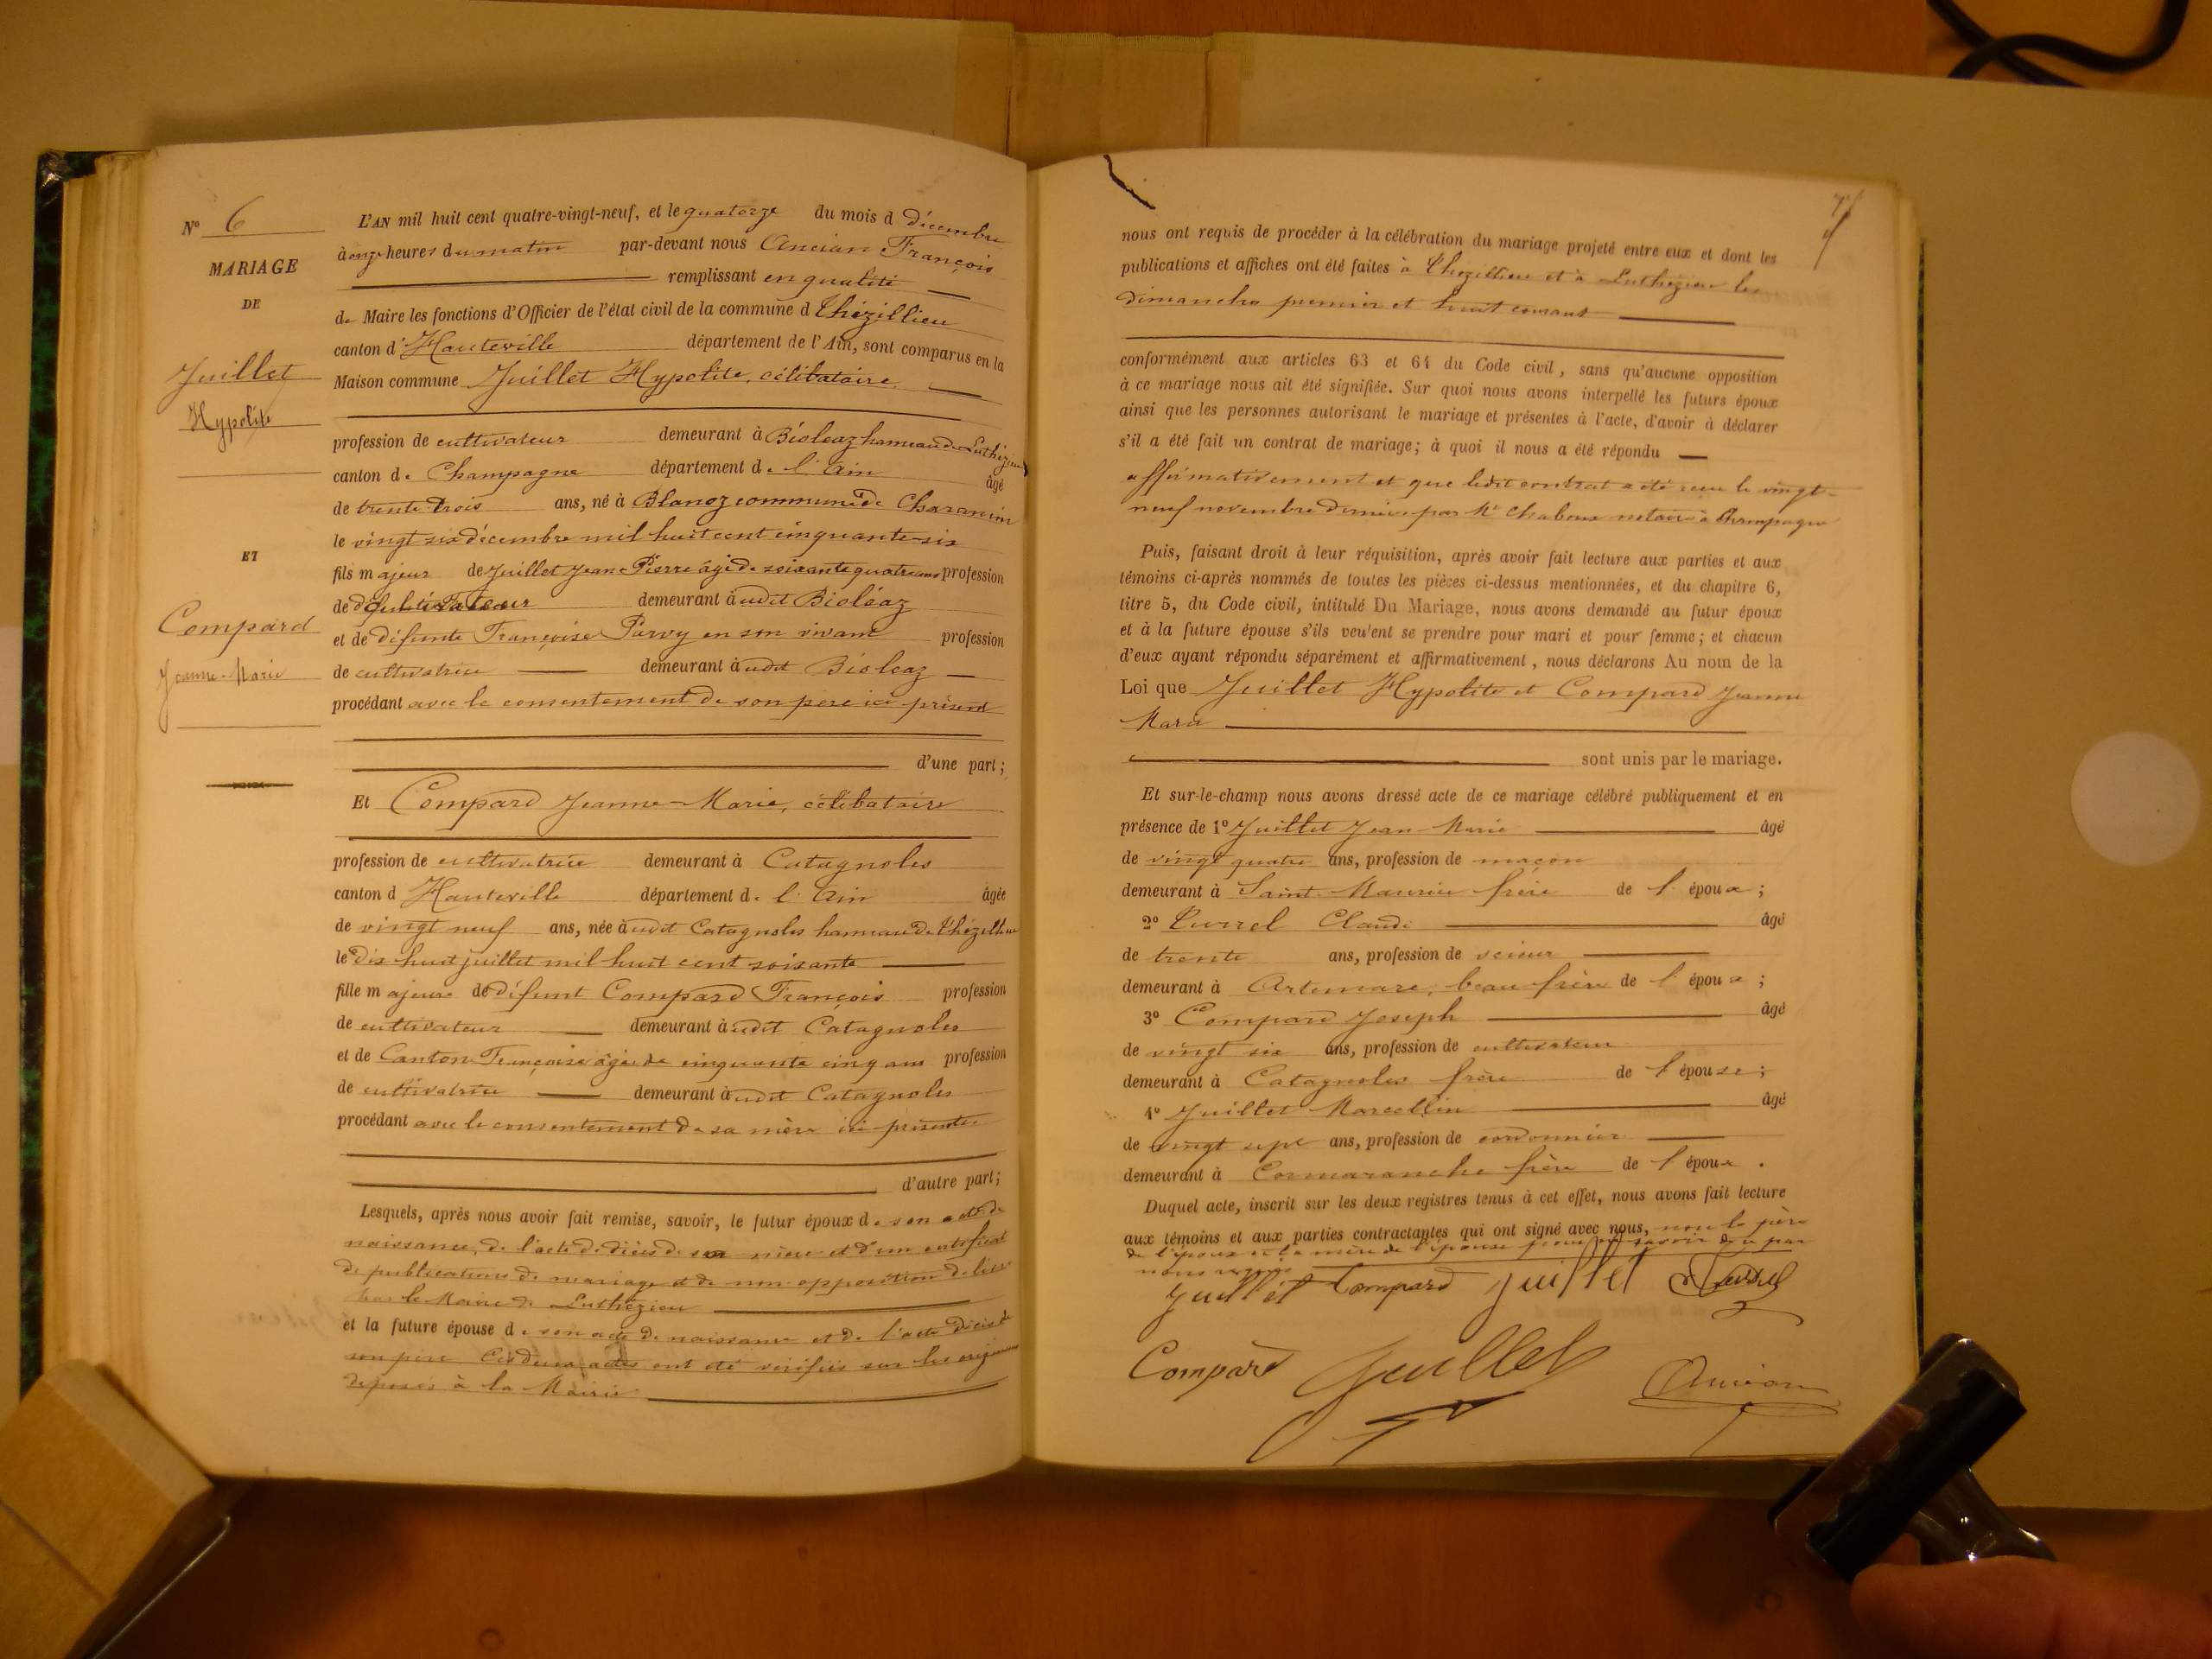 N° 6
MARIAGE
DE
Juillet
Hypolite
ET
Compard
Jeanne-Marie
L'AN mil huit cent quatre-vingt-neuf, et le quatorze du mois d décembre
à onze heures du matin par-devant nous Ancian François
remplissant en qualité
de Maire les fonctions d'Officier de l'état civil de la commune d Thézillieu
canton d' Hauteville département de l'Ain, sont comparus en la
Maison commune Juillet Hypolite, célibataire
profession de cultivateur demeurant à Bioléaz hameau de Luthézieu
canton de Champagne département de l'Ain âgé
de trente-trois ans, né à Blanaz commune de Charancin
le vingt six décembre mil huit cent cinquante-six
fils majeur de Juillet Jean-Pierre âgé de soixante quatre ans profession
de cultivateur demeurant à udit Bioléaz
et de défunte Françoise Parvy en son vivant profession
de cultivatrice demeurant à udit Bioléaz
procédant avec le consentement de son père ici présent
d'une part;
Et Compard Jeanne-Marie, célibataire
profession de cultivatrice demeurant à Catagnoles
canton d Hauteville département de l'Ain âgée
de vingt neuf ans, née à udit Catagnoles hameau de Thézillieu
le dix huit juillet mil huit cent soixante
fille majeure de défunt Compard François profession
de cultivateur demeurant à udit Catagnoles
et de Canton Françoise âgée de cinquante cinq ans profession
de cultivatrice demeurant à udit Catagnoles
procédant avec le consentement de sa mère ici présente
d'autre part;
Lesquels, après nous avoir fait remise, savoir, le futur époux de son acte de
naissance, de l'acte de décès de sa mère et d'un certificat
de publications de mariage et de non opposition délivré
par le Maire de Luthézieu
et la future épouse de son acte de naissance et de l'acte décès de
son père Ces deux actes ont été vérifiés sur les originaux
déposés à la Mairie
nous ont requis de procéder à la célébration du mariage projeté entre eux et dont les
publications et affiches ont été faites à Thézillieu et à Luthézieu les
dimanches premier et huit courant
conformément aux articles 63 et 64 du Code civil, sans qu'aucune opposition
à ce mariage nous ait été signifiée. Sur quoi nous avons interpellé les futurs époux
ainsi que les personnes autorisant le mariage et présentes à l'acte, d'avoir à déclarer
s'il a été fait un contrat de mariage; à quoi il nous a été répondu
affirmativement et que ledit contrat a été reçu le vingt-
neuf novembre dernier par Me Chaboux notaire à Champagne
Puis, faisant droit à leur réquisition, après avoir fait lecture aux parties et aux
témoins ci-après nommés de toutes les pièces ci-dessus mentionnées, et du chapitre 6,
titre 5, du Code civil, intitulé Du Mariage, nous avons demandé au futur époux
et à la future épouse s'ils veulent se prendre pour mari et pour femme; et chacun
d'eux ayant répondu séparément et affirmativement, nous déclarons Au nom de la
Loi que Juillet Hypolite et Compard Jeanne
Marie
sont unis par le mariage.
Et sur-le-champ nous avons dressé acte de ce mariage célébré publiquement et en
présence de 1° Juillet Jean-Marie âgé
de vingt quatre ans, profession de maçon
demeurant à Saint-Maurice frère de l'époux;
2° Turrel Claude âgé
de trente ans, profession de scieur
demeurant à Artemare, beau frère de l'époux;
3° Compard Joseph âgé
de vingt six ans, profession de cultivateur
demeurant à Catagnoles frère de l'épouse;
4° Juillet Marcellin âgé
de vingt sept ans, profession de cordonnier
demeurant à Cormaranche frère de l'époux.
Duquel acte, inscrit sur les deux registres tenus à cet effet, nous avons fait lecture
aux témoins et aux parties contractantes qui ont signé avec nous, non le père
de l'époux et la mère de l'épouse pour ne savoir de ce par
nous requis
Juillet Compard Juillet Turrel
Compard Juillet Ancian